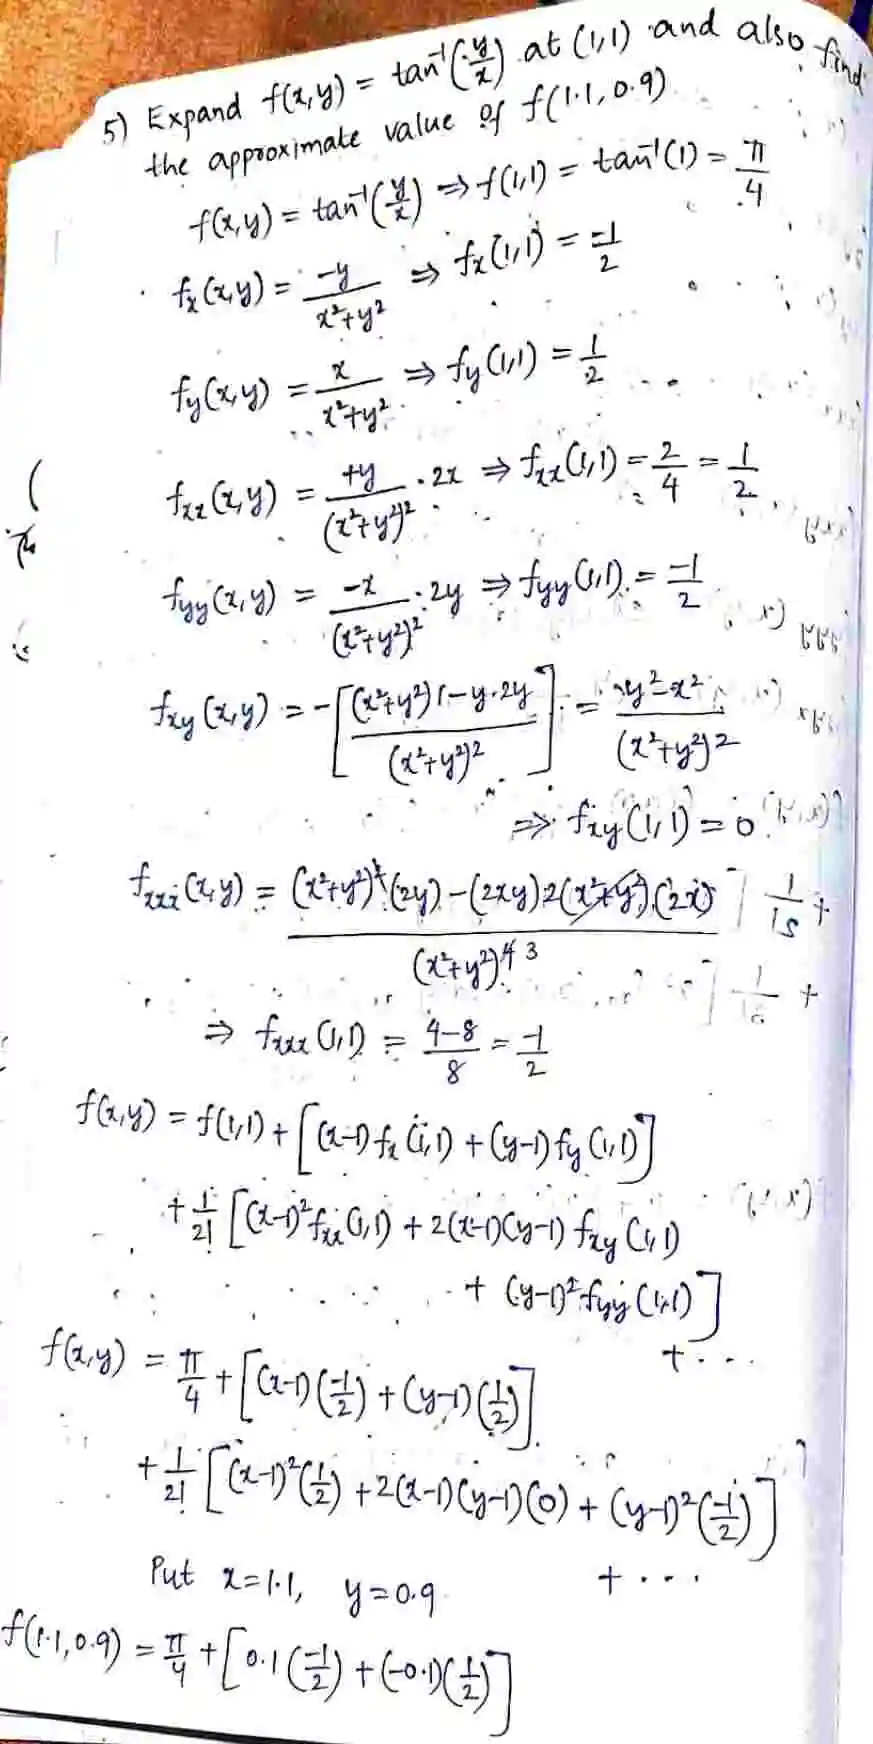 5) Expand f(x,y) = tan⁻¹(y/x) at (1,1) and also find
the approximate value of f(1.1, 0.9)
f(x,y) = tan⁻¹(y/x) ⇒ f(1,1) = tan⁻¹(1) = π/4
fx(x,y) = -y/(x²+y²) ⇒ fx(1,1) = -1/2
fy(x,y) = x/(x²+y²) ⇒ fy(1,1) = 1/2
fxx(x,y) = +y/(x²+y²)² · 2x ⇒ fxx(1,1) = 2/4 = 1/2
fyy(x,y) = -x/(x²+y²)² · 2y ⇒ fyy(1,1) = -1/2
fxy(x,y) = -[((x²+y²)1 - y·2y)/(x²+y²)²] = (y²-x²)/(x²+y²)²
⇒ fxy(1,1) = 0
fxxx(x,y) = ((x²+y²)²(2y) - (2xy)2(x²+y²)(2x))/(x²+y²)⁴ ³
⇒ fxxx(1,1) = (4-8)/8 = -1/2
f(x,y) = f(1,1) + [(x-1)fx(1,1) + (y-1)fy(1,1)]
+ 1/2! [(x-1)²fxx(1,1) + 2(x-1)(y-1) fxy(1,1)
+ (y-1)² fyy(1,1)]
+ ...
f(x,y) = π/4 + [(x-1)(-1/2) + (y-1)(1/2)]
+ 1/2! [(x-1)²(1/2) + 2(x-1)(y-1)(0) + (y-1)²(-1/2)]
+ ...
Put x=1.1, y=0.9
f(1.1,0.9) = π/4 + [0.1(-1/2) + (-0.1)(1/2)]